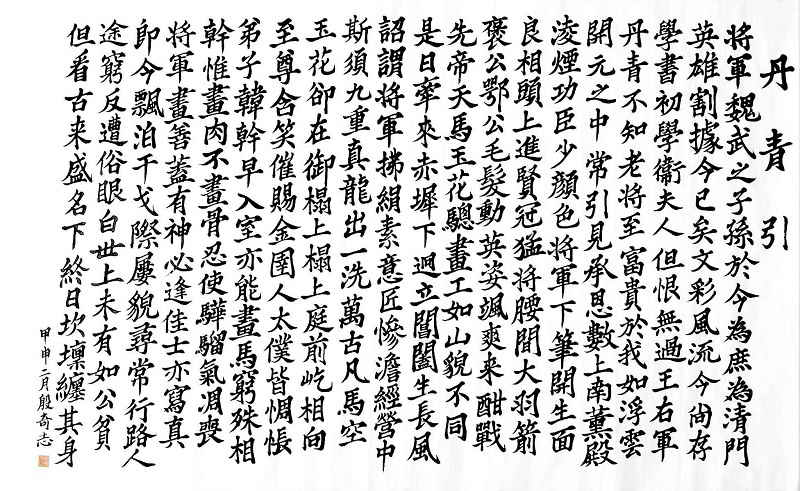 丹青引
將軍魏武之子孫於今為庶為清門
英雄割據今已矣文彩風流今尚存
學書初學衞夫人但恨無過王右軍
丹青不知老将至富貴於我如浮雲
開元之中常引見承恩數上南薰殿
淩煙功臣少顏色将軍下筆開生面
良相頭上進賢冠猛将腰間大羽箭
褒公鄂公毛髮動英姿颯爽来酣戰
先帝天馬玉花驄畫工如山貌不同
是日牽来赤墀下迥立閶闔生長風
詔謂将軍拂絹素意匠慘澹經營中
斯須九重真龍出一洗萬古凡馬空
玉花卻在御榻上榻上庭前屹相向
至尊含笑催賜金圉人太僕皆惆悵
弟子韓幹早入室亦能畫馬窮殊相
幹惟畫肉不畫骨忍使驊騮氣凋喪
将軍畫善蓋有神必逢佳士亦寫真
即今飄泊干戈際屢貌尋常行路人
途窮反遭俗眼白世上未有如公貧
但看古来盛名下終日坎壈纏其身
甲申二月殷奇志